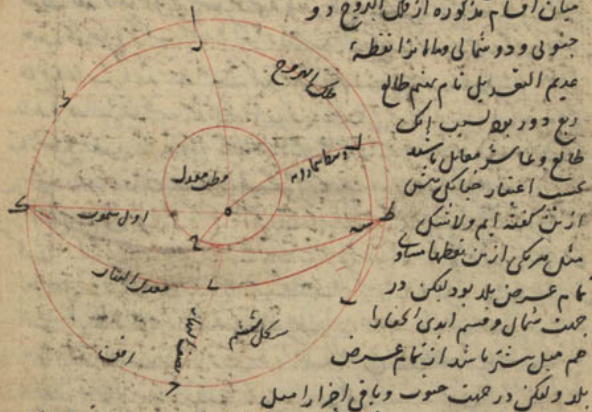 میان اقسام مذکوره از فلک البروج دو
جنوبی و دو شمالی و ما نقطهٔ
عدیم التعدیل نام نهیم طالع
ربع دور بود بسبب انک
طالع و عاشر مقابل باشند
بحسب اعتبار چنانکی پیش
ازین گفته ایم و لاشک
میل هریکی ازین نقطها مساوی
تمام عرض بلد بود لیکن در
جهت شمال و قسم ابدی الخفا را
هم میل بیشتر باشد از تمام عرض
بلد و لیکن در جهت جنوب و باقی اجزا را میل
فلک البروج
وسط سماء رویه
قطب معدل
اول سموت
معدل النهار
نصف النهار
شکل ششم
افق